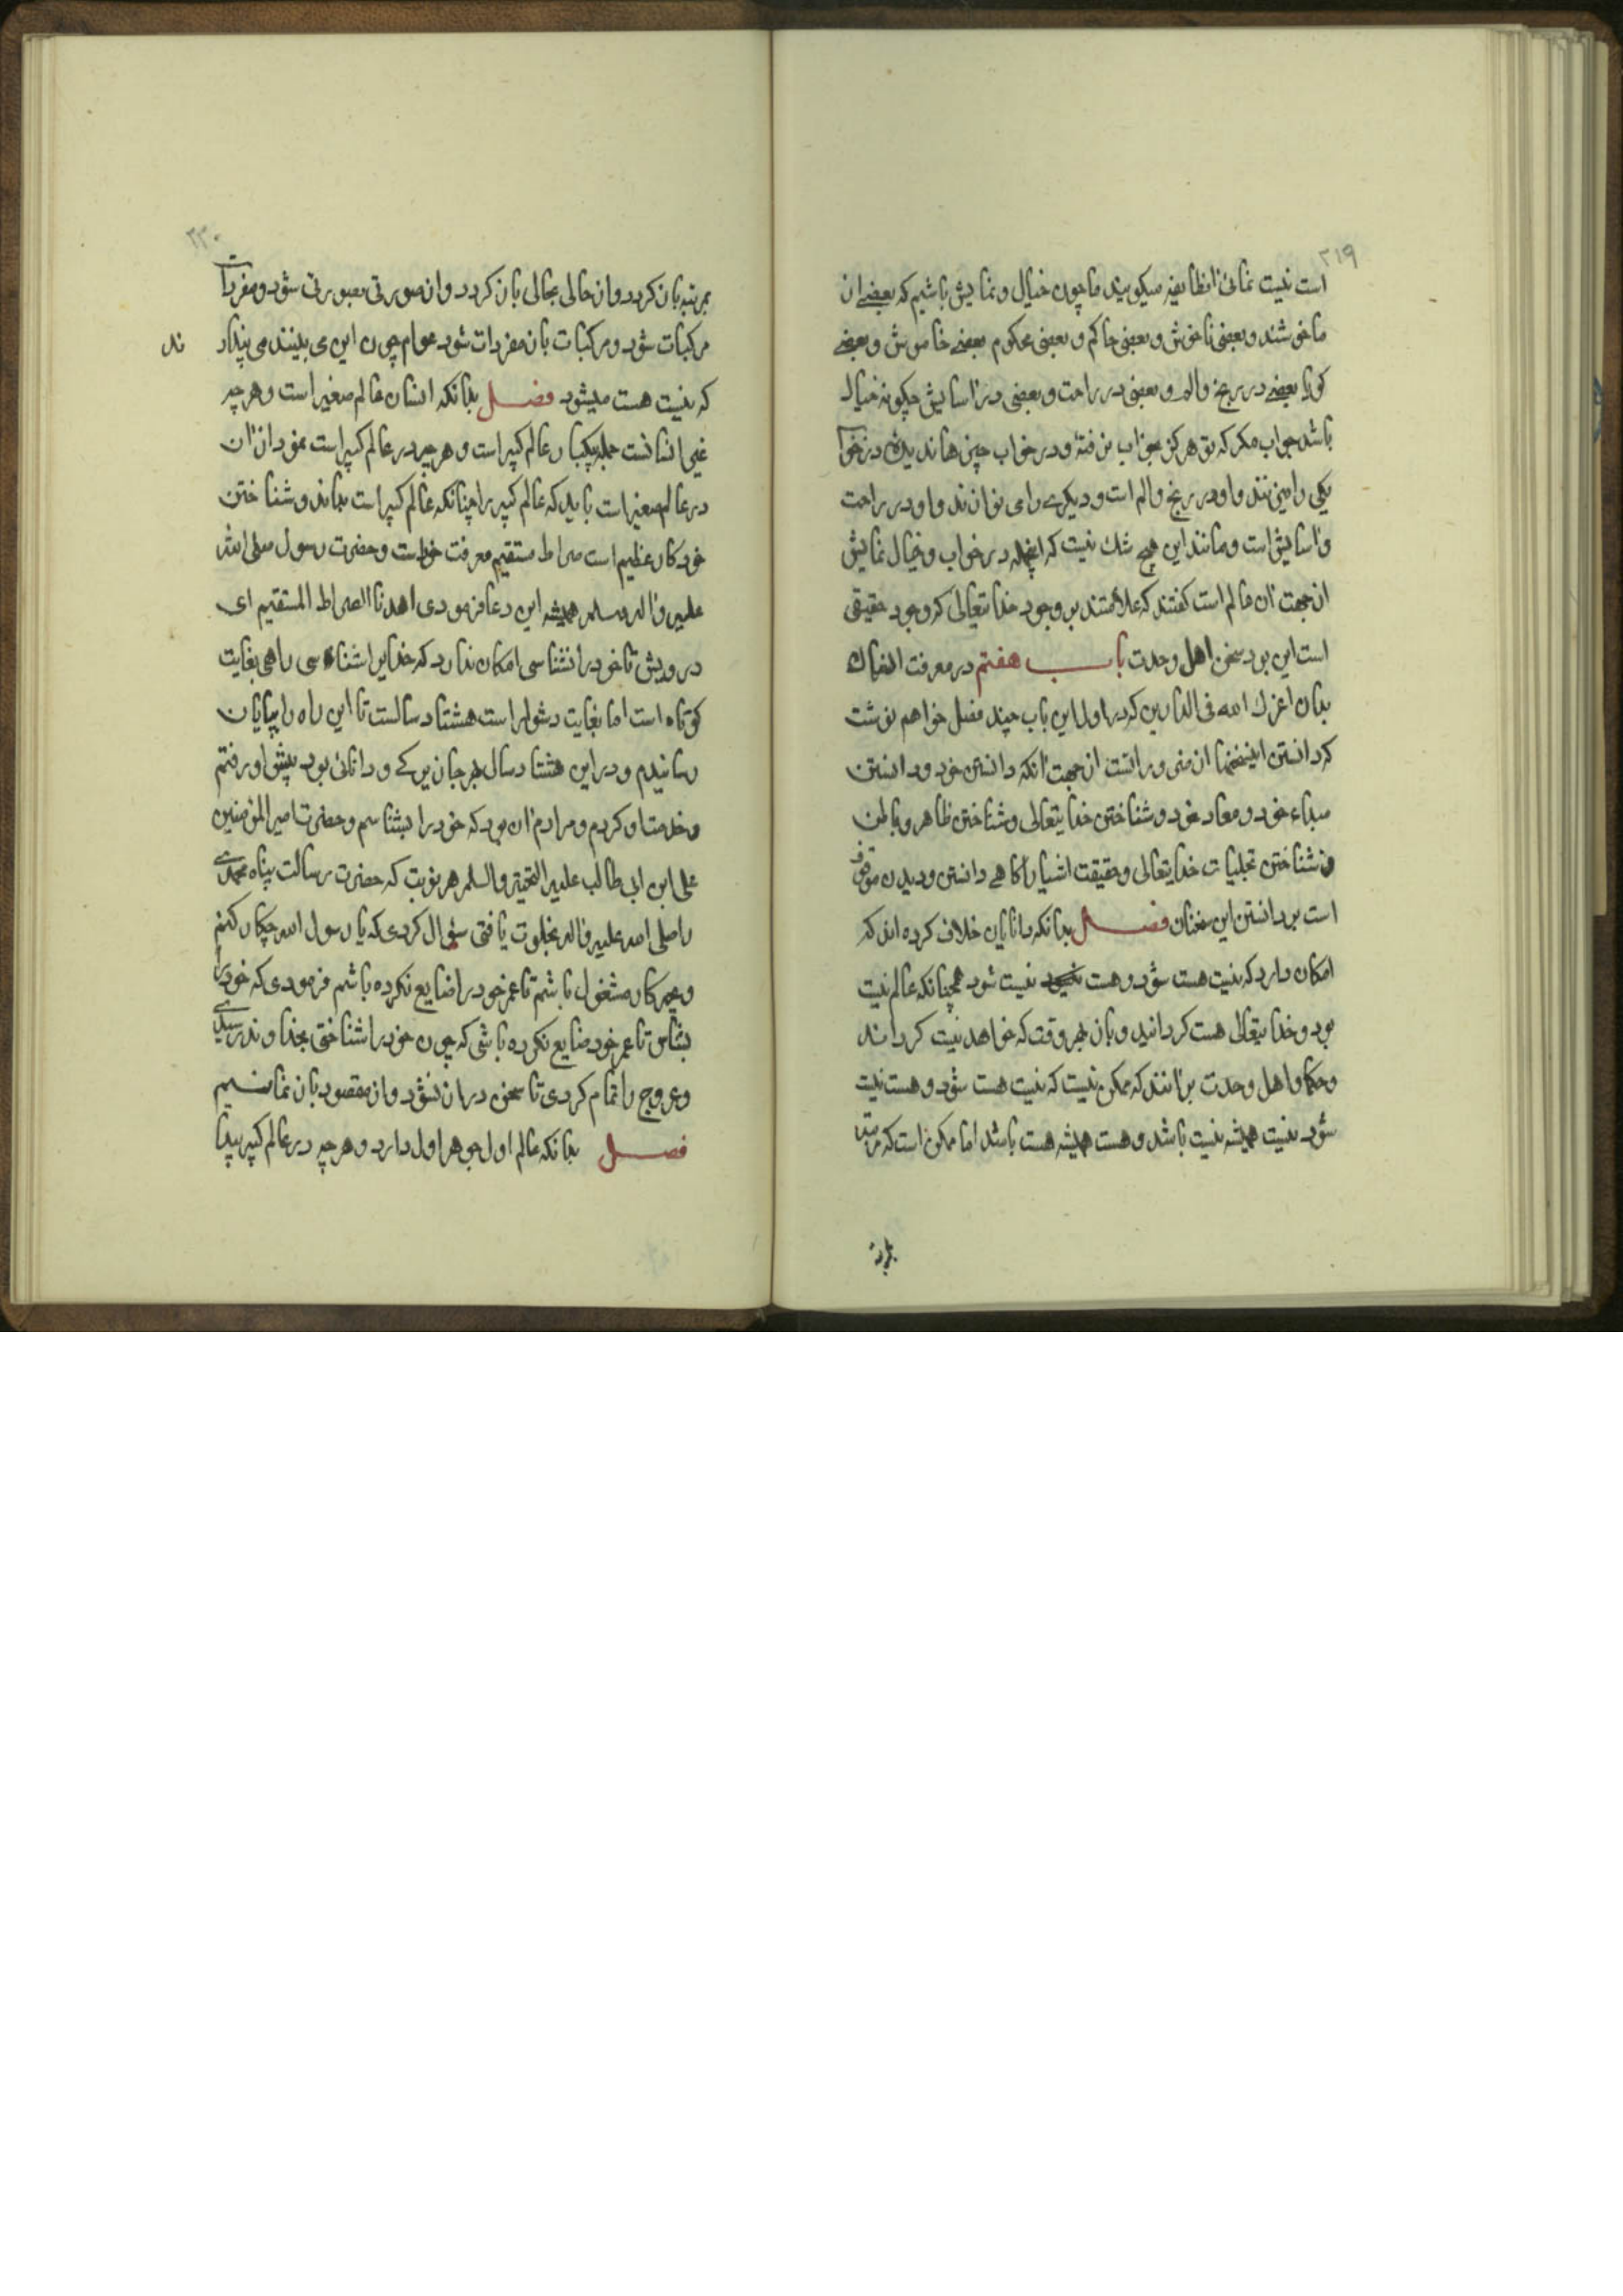 ۲۱۹
است نیست نمائی انطایفه میکویند ما چون خیال و نمایش باشیم که بعضے از
ما خوشند و بعضی ناخوش و بعضی حاکم و بعضی محکوم بعضے خاموش و بعضے
کویا بعضے در رنج والم و بعضی در راحت و بعضی در اسایش چکونه خیال
باشد جواب مکر که تو هرکز بخواب نرفتهٔ و در خواب چیزها ندیدهٔ در خواب
یکی را میزنند و او در رنج و الم است و دیکرے را می نوازند و او در راحت
و اسایش است و مانند این هیچ شک نیست که انجمله در خواب و خیال نمایش
ازجهت ان عالم است کفتند که علامتند بر وجود خدایتعالی که وجود حقیقی
است این بود سخن اهل وحدت باب هفتم در معرفت انسان
بدان اعزک الله فی الدارین که در اول این باب چند فصل خواهم نوشت
که دانستن اینسخنها از ضروراتست ازجهت انکه دانستن خود و دانستن
مبداء خود و معاد خود و شناختن خدایتعالی و شناختن ظاهر و باطن
و شناختن تجلیات خدایتعالی و حقیقت اشیا را کاهے دانستن و دیدن موقوف
است بر دانستن این سخنان فصل بدانکه دانایان خلاف کرده اند که
امکان دارد که نیست هست شود و هست نیست شود همچنانکه عالم نیست
بود و خدایتعالی هست کردانید و باز بهر وقت که خواهد نیست کرداند
و حکما و اهل وحدت برانند که ممکن نیست که نیست هست شود و هست نیست
شود نیست همیشه نیست باشد و هست همیشه هست باشد اما ممکن است که مرتبه
بمرتبه
۲۲۰
بمرتبه باز کردد و از حالی بحالی باز کردد و از صورتی بصورتی شود و مفردات
مرکبات شود و مرکبات باز مفردات شود عوام چون این می بینند می پندار
ند
که نیست هست میشود فصل بدانکه انسان عالم صغیر است و هرچه
غیر انسانست جمله یکبار عالم کبیر است و هرچه در عالم کبیر است نمودار ان
در عالم صغیر است باید که عالم کبیر را چنانکه عالم کبیر است بداند و شناختن
خود کار عظیم است صراط مستقیم معرفت خود است و حضرت رسول صلی الله
علیه و اله وسلم همیشه این دعا فرمودی اهدنا الصراط المستقیم ای
درویش تا خود را نشناسی امکان ندارد که خدایرا شناسی راهی بغایت
کوتاه است اما بغایت دشوار است هشتاد سالست تا این راه را بپایان
رسانیدم و در این هشتاد سال هر جا بزرکے و دانائی بود پیش او رفتم
و خدمت او کردم و مرادم ان بود که خود را بشناسم و حضرت امیر المؤمنین
علی ابن ابی طالب علیه التحیة والسلم هر نوبت که حضرت رسالت پناه محمدے
را صلی الله علیه و اله بخلوت یافتی سؤال کردی که یا رسول الله چکار کنم
و بچه کار مشغول باشم تا عمر خود را ضایع نکرده باشم فرمودی که خود را
بشناس تا عمر خود ضایع نکرده باشی که چون خود را شناختی بخداوند رسیدے
و عروج را تمام کردی تا سخن دراز نشود و از مقصود باز نمانیم
فصل بدانکه عالم اول جوهر اول دارد و هرچه در عالم کبیر پیدا